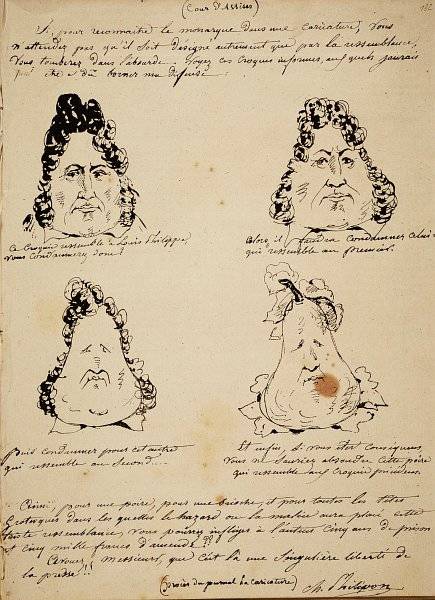 (Cour d'Assises)
182
Si, pour reconnaitre le monarque dans une caricature, vous
n'attendez pas qu'il soit désigné autrement que par la ressemblance,
Vous tomberez dans l'absurde. Voyez ces croquis informes, auxquels j'aurais
peut être dû borner ma défense
Ce Croquis ressemble à Louis Philippe,
vous condamnerez donc ?
Alors il faudra condamner celui-ci
qui ressemble au premier.
Puis condamner pour cet autre
qui ressemble au second...
Et enfin, si vous êtes conséquens
Vous ne sauriez absoudre cette poire
qui ressemble aux croquis précédens.
Ainsi, pour une poire, pour une brioche, et pour toutes les têtes
Grotesques dans lesquelles le hazard ou la malice aura placé cette
triste ressemblance, Vous pourrez infliger à l'auteur cinq ans de prison
et cinq mille francs d'amende ??
Avouez, Messieurs, que c'est là une Singulière liberté de
la presse !!
(procès du journal la Caricature)
Ch. Philipon